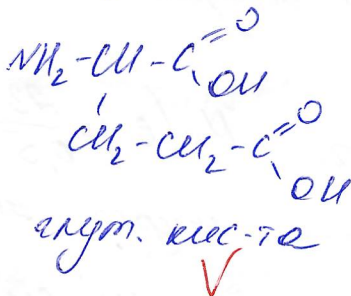 NH₂-CH-C=O
OH
CH₂-CH₂-C=O
OH
глут. кис-та